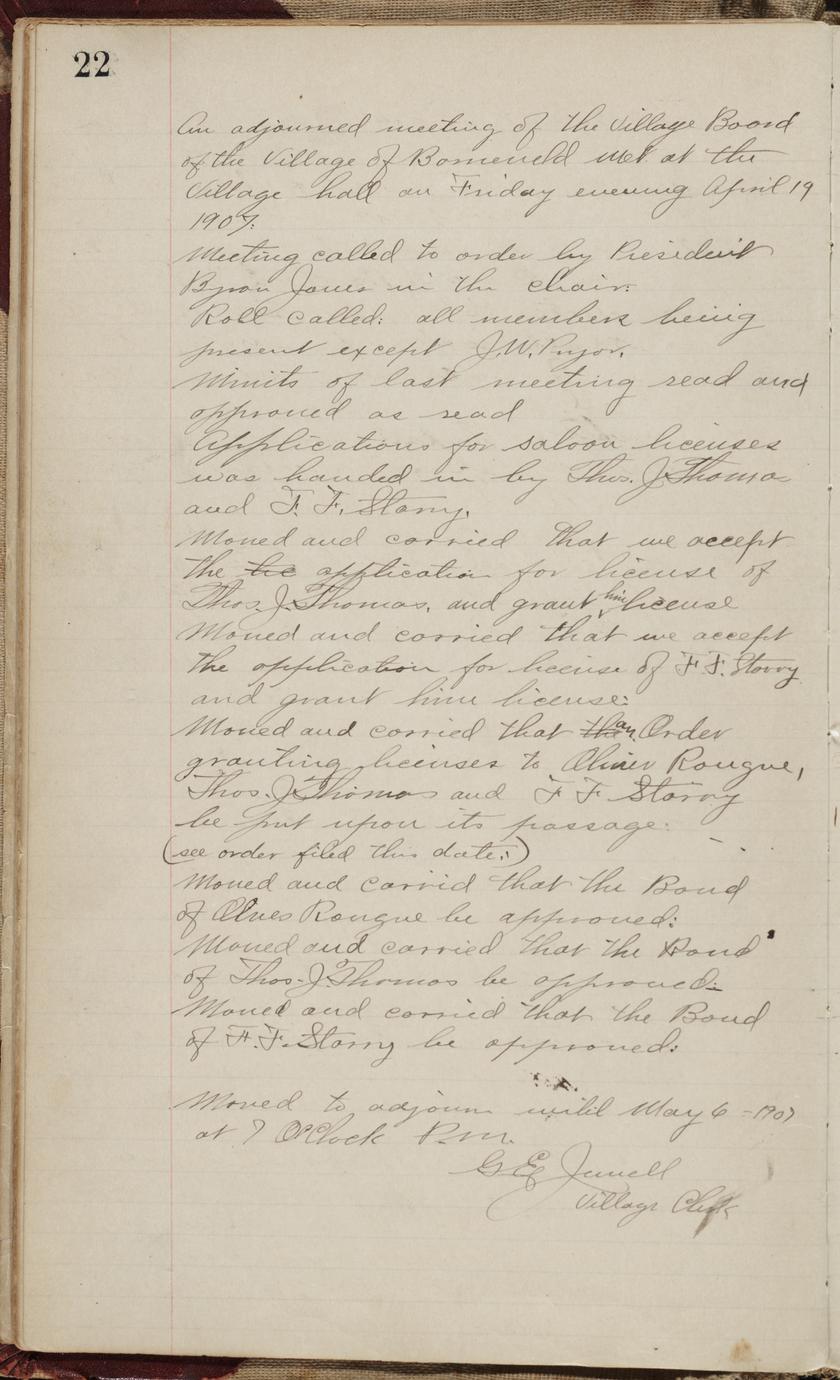 22
An adjourned meeting of the Village Board
of the Village of Barneveld met at the
Village hall on Friday evening April 19
1907.
Meeting called to order by President
Byron Jones in the chair:
Roll called: all members being
present except J.W. Pryor.
Minits of last meeting read and
approved as read
Applications for saloon licenses
was handed in by Thos. J. Thomas
and F. F. Starry.
Moved and carried that we accept
the lic application for license of
Thos. J. Thomas, and grant him license
Moved and carried that we accept
the application for license of F F. Starry
and grant him license:
Moved and carried that the an Order
granting licenses to Oliver Rongve,
Thos. J Thomas and F F Starry
be put upon its passage:
(see order filed this date:)
Moved and carrid that the Bond
of Olives Rongve be approved:
Moved and carried that the Bond
of Thos. J. Thomas be approved:
Moved and carried that the Bond
of F. F. Starry be approved:
Moved to adjourn until May 6 - 1907
at 7 O'Clock P.M.
G E Jewell
Village Clerk